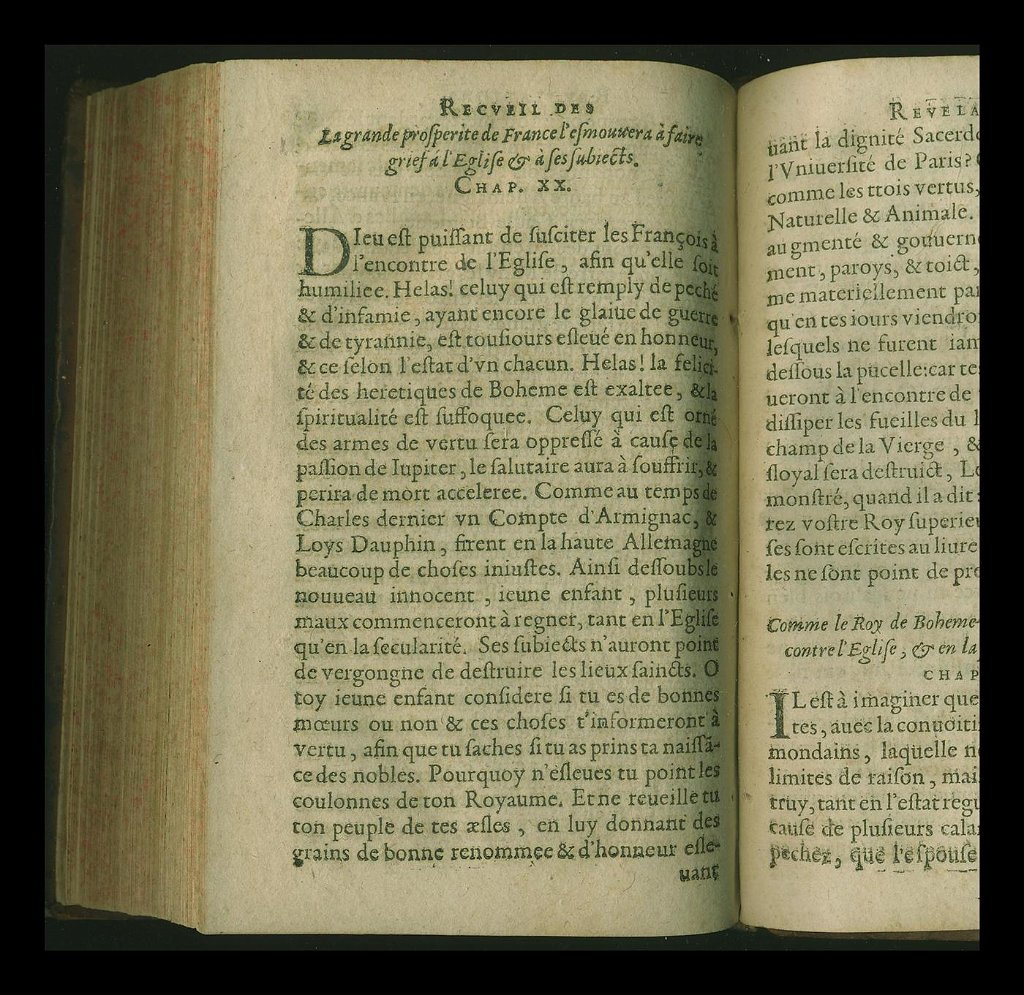 RECVEIL DES
La grande prosperite de France l'esmouuera à faire
grief á l'Eglise & à ses subiects.
CHAP. XX.
DIeu est puissant de susciter les François à
l'encontre de l'Eglise, afin qu'elle soit
humiliee. Helas! celuy qui est remply de peché
& d'infamie, ayant encore le glaiue de guerre
& de tyrannie, est tousiours esleué en honneur,
& ce selon l'estat d'vn chacun. Helas! la felici-
té des heretiques de Boheme est exaltee, & la
spiritualité est suffoquee. Celuy qui est orné
des armes de vertu sera oppressé à cause de la
passion de Iupiter, le salutaire aura à souffrir, &
perira de mort acceleree. Comme au temps de
Charles dernier vn Compte d'Armignac, &
Loys Dauphin, firent en la haute Allemagne
beaucoup de choses iniustes. Ainsi dessoubs le
nouueau innocent, ieune enfant, plusieurs
maux commenceront à regner, tant en l'Eglise
qu'en la secularité. Ses subiects n'auront point
de vergongne de destruire les lieux saincts. O
toy ieune enfant considere si tu es de bonnes
mœurs ou non & ces choses t'informeront à
vertu, afin que tu saches si tu as prins ta naissã-
ce des nobles. Pourquoy n'esleues tu point les
coulonnes de ton Royaume. Et ne reueille tu
ton peuple de tes æsles, en luy donnant des
grains de bonne renommee & d'honneur esle-
uant
REVELA
uant la dignité Sacerdo
l'Vniuersité de Paris?
comme les trois vertus,
Naturelle & Animale.
augmenté & gouuern
ment, paroys, & toict,
me materiellement pa
qu'en tes iours viendro
lesquels ne furent iam
dessous la pucelle: car te
ueront à l'encontre de
dissiper les fueilles du l
champ de la Vierge, &
sloyal sera destruict, L
monstré, quand il a dit:
rez vostre Roy superieu
ses sont escrites au liure
les ne sont point de pre
Comme le Roy de Boheme
contre l'Eglise, & en la
CHAP
IL est à imaginer que
tes, auec la conuoiti
mondains, laquelle n
limites de raison, mai
truy, tant en l'estat regu
cause de plusieurs cala
pechez, que l'espouse